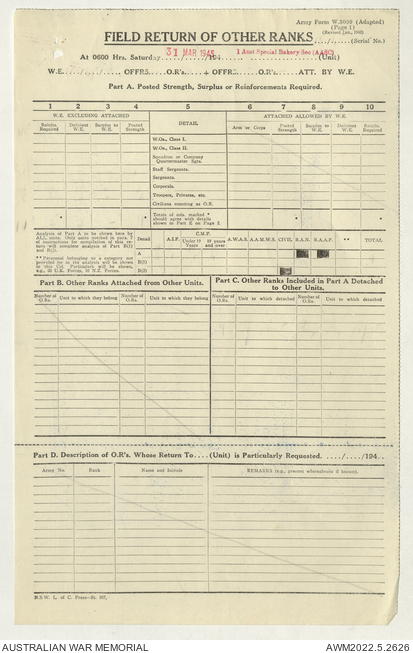 Army Form W.3009 (Adapted)
(Page 1)
(Revised Jan., 1943)
FIELD RETURN OF OTHER RANKS ..../.... (Serial No.)
At 0600 Hrs. Saturday 31 MAR 1945 /194 1 Aust Special Bakery Sec (AASC) (Unit)
W.E...../...../..... OFFRS.....O.R's..... + OFFRS.....O.R's.....ATT. BY W.E.
Part A. Posted Strength, Surplus or Reinforcements Required.
1 2 3 4 5 6 7 8 9 10
W.E. EXCLUDING ATTACHED DETAIL ATTACHED ALLOWED BY W.E.
Reinfts. Required Deficient W.E. Surplus to W.E. Posted Strength Arm or Corps Posted Strength Surplus to W.E. Deficient W.E. Reinfts. Required
W.Os., Class I.
W.Os., Class II.
Squadron or Company
Quartermaster Sgts.
Staff Sergeants.
Sergeants.
Corporals.
Troopers, Privates, etc.
Civilians counting as O.R.
Totals of cols. marked *
should agree with details
shown in Part E on Page 2.
Analysis of Part A to be shown here by
ALL units. Detail A.I.F. C.M.F. Under 19 Years 19 years and over A.W.A.S. A.A.M.W.S. CIVIL R.A.N. R.A.A.F. ** TOTAL
A
B(1)
B(2)
** Personnel belonging to a category not
provided for in the analysis will be shown
in this Col. Particulars will be shown,
e.g., 20 U.K. Forces, 10 N.Z. Forces.
Part B. Other Ranks Attached from Other Units. Part C. Other Ranks Included in Part A Detached
to Other Units.
Number of O.Rs. Unit to which they belong Number of O.Rs. Unit to which they belong Number of O.Rs. Unit to which detached Number of O.Rs. Unit to which detached
Part D. Description of O.R's. Whose Return To....(Unit) is Particularly Requested. ..../..../194..
Army No. Rank Name and Initials REMARKS (e.g., present whereabouts if known).
N.S.W. L. of C. Press
AUSTRALIAN WAR MEMORIAL AWM2022.5.2626